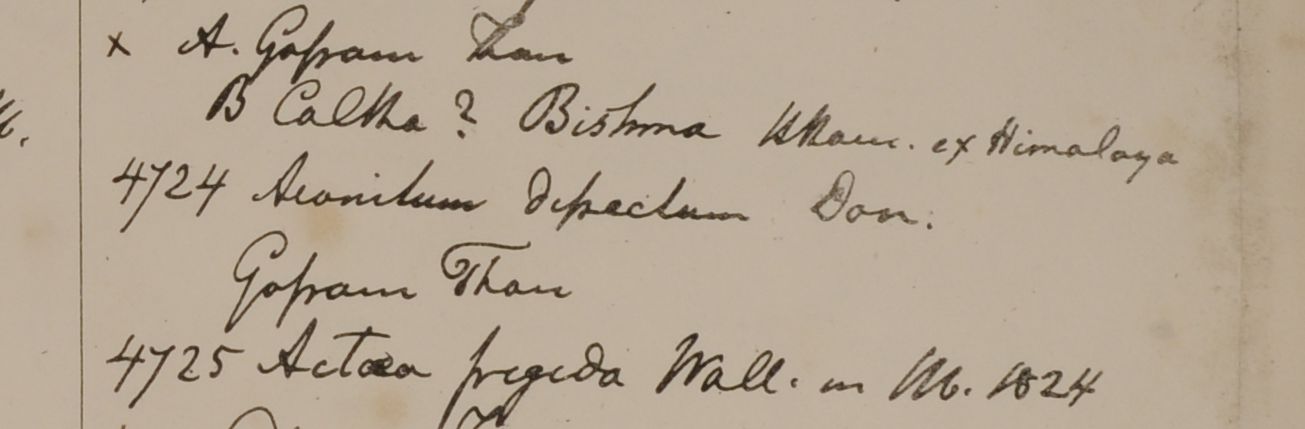 x A. Gossam Than
B Caltha? Bishma Kham. ex Himalaya
4724 Aconitum dissectum Don.
Gossam Than
4725 Actaea frigida Wall. in M. 1824